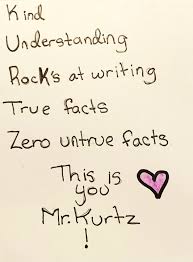 Kind
Understanding
Rock's at writing
True facts
Zero untrue facts
This is
you
Mr. Kurtz
!